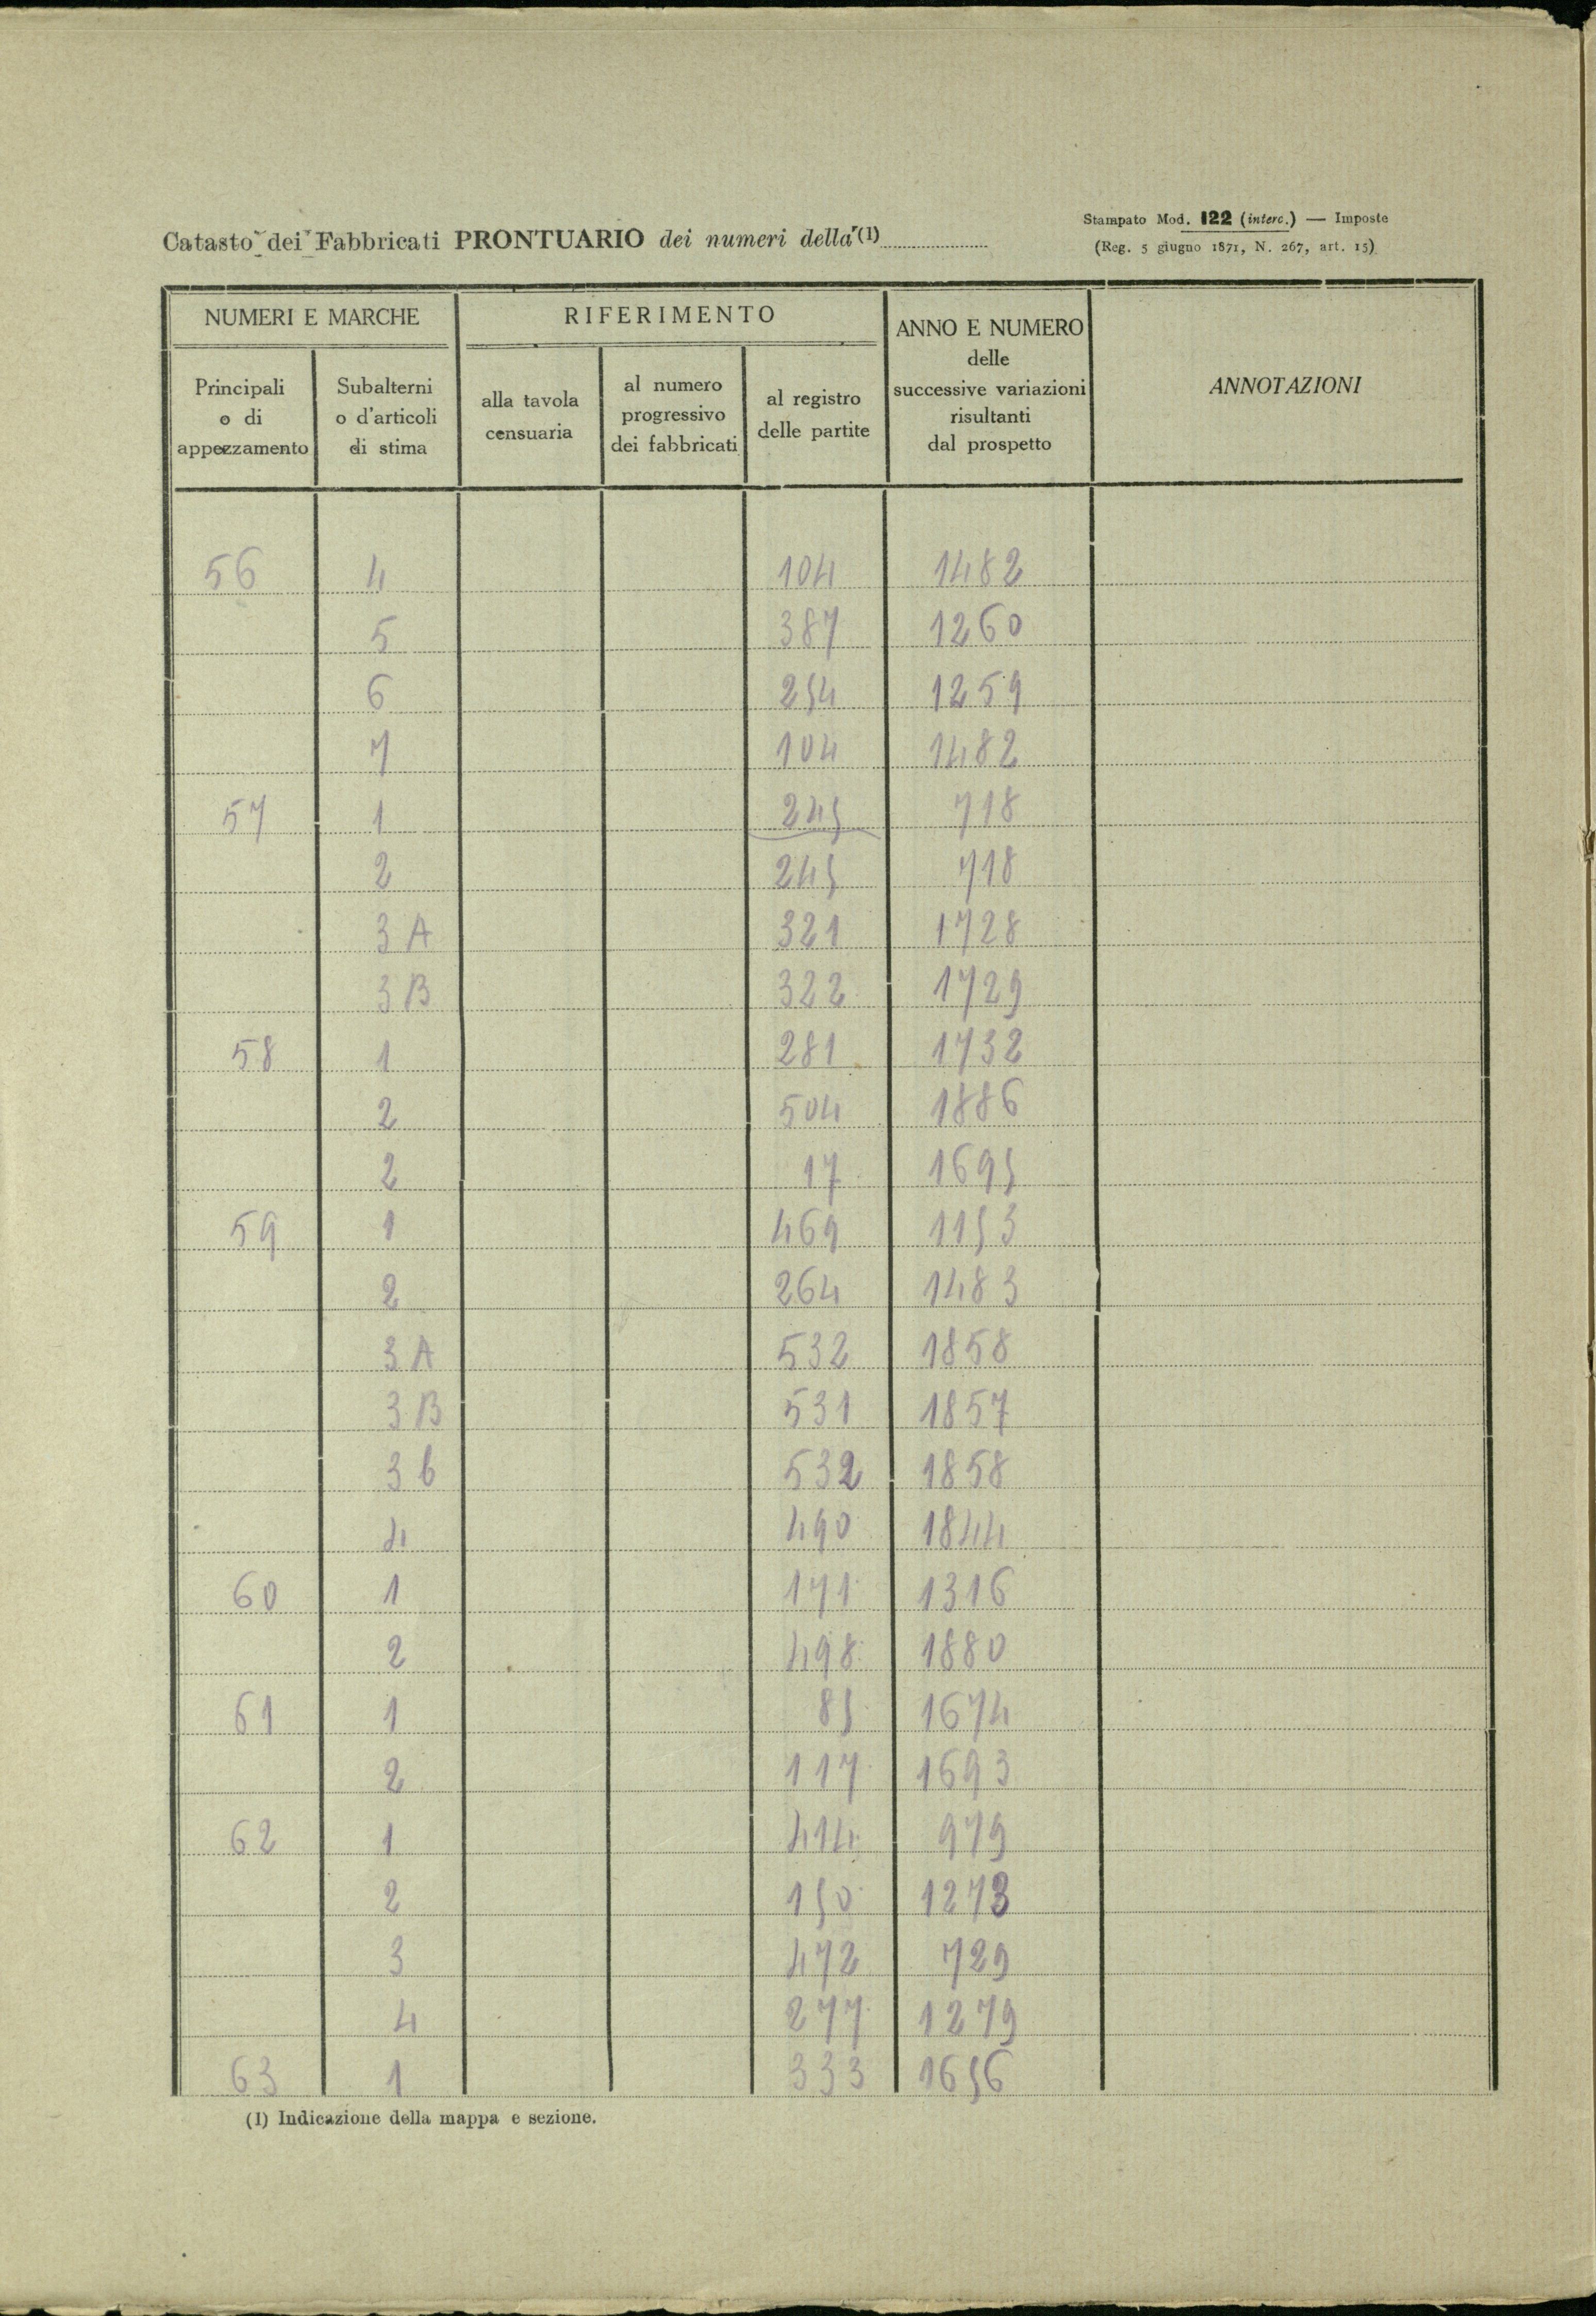 Catasto dei Fabbricati PRONTUARIO dei numeri della (1)
Stampato Mod. 122 (interc.) — Imposte
(Reg. 5 giugno 1871, N. 267, art. 15)
NUMERI E MARCHE
RIFERIMENTO
ANNO E NUMERO
delle
successive variazioni
risultanti
dal prospetto
ANNOTAZIONI
Principali
o di
appezzamento
Subalterni
o d'articoli
di stima
alla tavola
censuaria
al numero
progressivo
dei fabbricati
al registro
delle partite
56 4 104 1482
5 387 1260
6 254 1259
7 104 1482
57 1 245 718
2 245 718
3 A 321 1728
3 B 322 1729
58 1 281 1732
2 504 1886
2 17 1695
59 1 469 1153
2 264 1483
3 A 532 1858
3 B 531 1857
3 b 532 1858
4 490 1844
60 1 171 1316
2 498 1880
61 1 85 1674
2 117 1693
62 1 414 979
2 150 1273
3 472 729
4 277 1279
63 1 333 1656
(1) Indicazione della mappa e sezione.